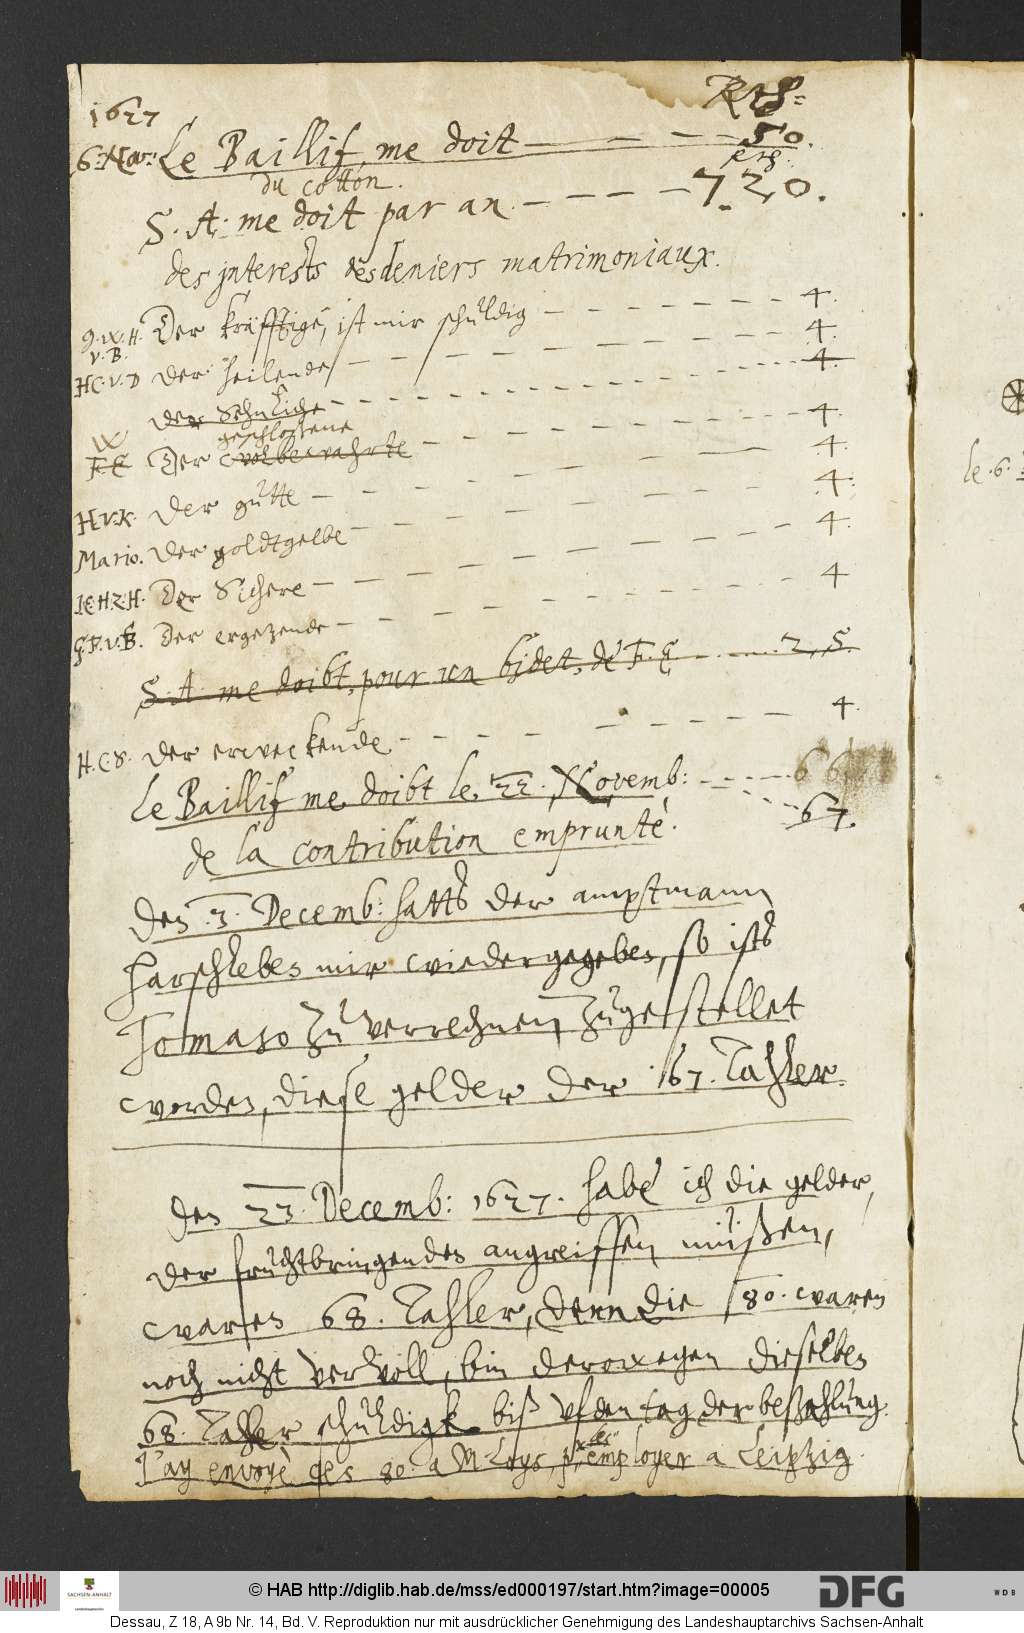 1627 Rth=
6. Nov: Le Baillif, me doit — — — — 50.
du cotton. erg:
S. A. me doit par an. — — — — 720.
des jnterests des deniers matrimoniaux.
J. W. H. Der kräfftige, ist mir schuldig — — — — 4.
v. B.
H C. v. D Der heilende — — — — 4.
der Sehnliche — — — — 4.
W geschlossene
F. E Der wolbewahrte — — — — 4.
H v. K. Der gütte — — — — 4.
Mario. Der goldtgelbe — — — — 4.
I E. H. Z. H. Der Sichere — — — — 4.
G. F. v. B. Der ergetzende — — — — 4
S. A. me doibt, pour un bidet, de F. E. — — — — 25.
H. C. S. Der erweckende — — — — 4.
Le Baillif me doibt le. 22. Novemb: — — — — 66
67.
de la contribution emprunté.
Den 3. Decemb: hatts der amptmann
Harschleben mir wiedergegeben, so ists
Tomaso zu verrechnen zugestellet
worden, diese gelder der 67. Tahler.
Den 23. Decemb: 1627. habe ich die gelder,
der fruchtbringenden angreiffen müßen,
waren 68. Tahler, denn die 80. waren
noch nicht gar voll, bin derowegen dieselben
68. Tahler schuldigk biß uf den tag der bezahlung.
les
J'ay envoyè les 80. a M. Loys, p. employer a Leipzig.
le. 6.
© HAB http://diglib.hab.de/mss/ed000197/start.htm?image=00005
SACHSEN-ANHALT
DFG
W D B
Dessau, Z 18, A 9b Nr. 14, Bd. V. Reproduktion nur mit ausdrücklicher Genehmigung des Landeshauptarchivs Sachsen-Anhalt